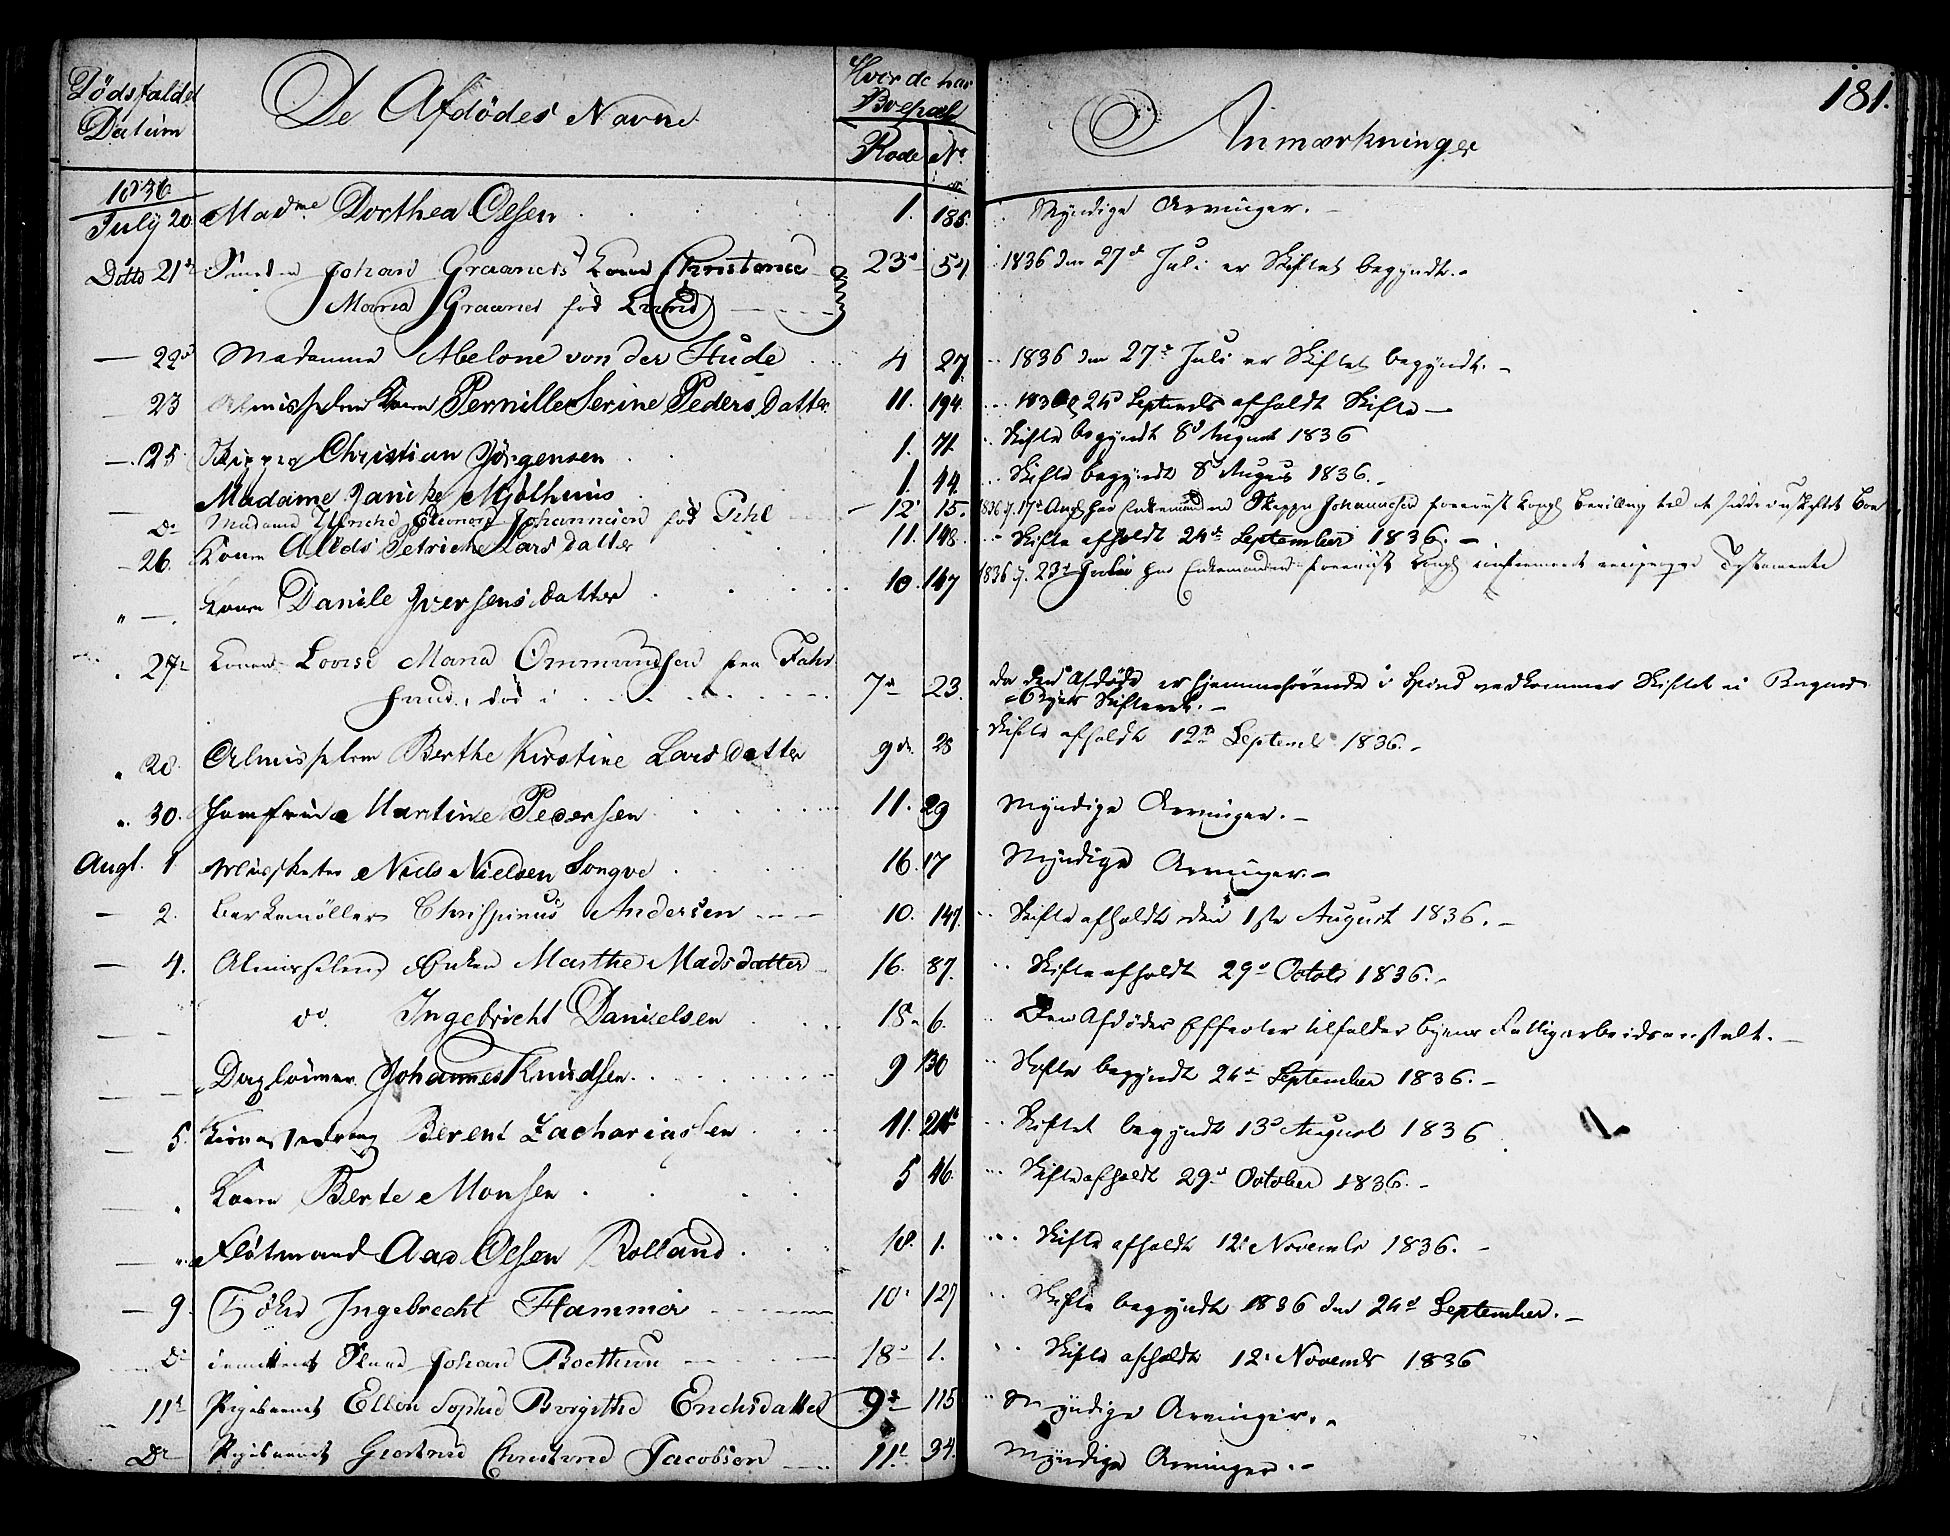 181.
Dödsfaldets Datum
De Afdödes Navne
Hvor de har Boepæl
Rode No
Anmærkninger
1836
July 20 Madme Dorthea Olsen 1. 185. Myndige Arvinger.
Ditto 21de Johan Graaners Kone Christence 23de 1836 den 27de Juli er Skiftet begyndt.
Maria Graaner föd Lund
— 22de Madamme Abelone von der Hude 4 27. 1836 den 27de Juli er Skiftet begyndt.
23 Almisselem Konen Pernille Serine Peders Datter 11. 194. 24de September afholdt Skifte
— 25 Skipper Christian Jörgensen 1. 71. Skifte begyndt 8de August 1836
— Madame Janicke Mjölhuus 1. 44. Skifte begyndt 8de August 1836.
Do Madame Eleonore Johannesen föd Pehl 12te 15. 1836 17de Aug har Enkemanden Skipper Johannesen foreviist Kongl Bevilling til at sidde i uskiftet Boe
— 26. Konen Petriche Lars datter 11. 148. Skifte afholdt 24de September 1836.
" —. Konen Danile Iversens datter 10. 147 1836 23de Juli har Enkemanden foreviist Kongl Testamente
27de Konen Lovise Maria Ommundsen fra Fahr
sund, död i 7de 23. da den Afdöde er hjemmehörende i Spind vedkommer Skiftet ei
Byens Skifteret.
" 28. Almisselem Berthe Kirstine Lars Datter 9de 28 Skifte afholdt 12te Septembr 1836.
" 30. Jomfrue Martine Pedersen 11. 29 Myndige Arvinger.
Augt. 1 Musketer Niels Nielsen Songve 16. 17 Myndige Arvinger.
— 2. Barkemöller Chrispinus Andersen 10. 147. Skifte afholdt den 1ste August 1836.
— 4. Almisselem Enken Marthe Mads datter 16. 87. Skifte afholdt 29de Octobr 1836.
— — do. Ingebricht Danielsen 18. 6. Den Afdödes Effecter tilfalder byens Fattigarbeidsanstalt.
— — Daglönner Johannes Knudsen 9 130 Skifte begyndt 24de September 1836.
— 5. Berent Zachariassen 11. Skiftet begyndt 13de August 1836
— " Konen Berte Monsen 5 46. Skifte afholdt 29de October 1836.
— " Flötmand Aad Olsen Rolland 18. 1. Skifte afholdt 12te Novembr 1836.
— 9. Ingebrecht Hammer 10. 127 Skifte begyndt 1836 den 24de September.
Do Johan Boethun 18de 1. Skifte afholdt 12te Novembr 1836
11te Pigebarnet Ellen Sophie Birgithe Erichsdatter 9de 115 Myndige Arvinger.
Do Pigebarnet Giertrud Christine Jacobsen 11te 34. Myndige Arvinger.